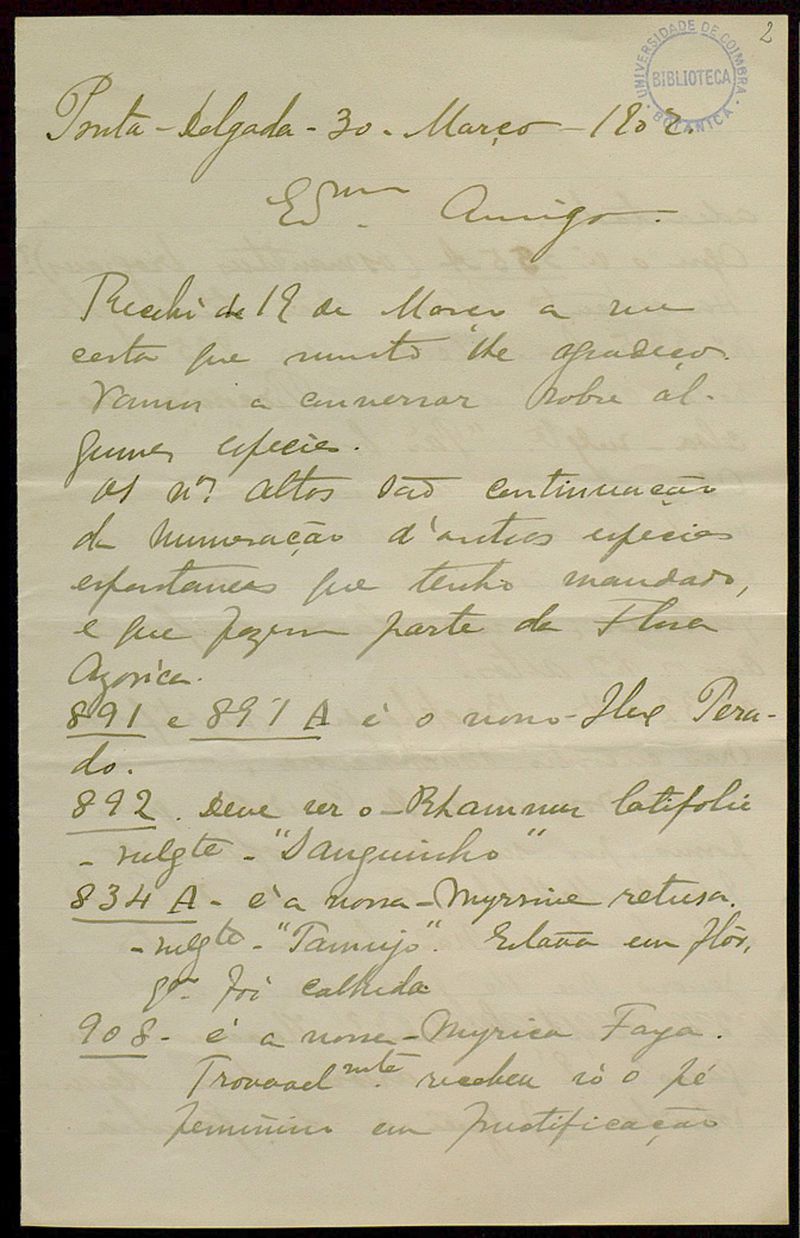 2
UNIVERSIDADE DE COIMBRA
BIBLIOTECA
BOTANICA
Ponta-Delgada-30-Março-1902.
Exmo. Amigo.
Recebi de 12 de Março a sua
carta que muito lhe agradeço.
Vamos a conversar sobre al-
gumas especies.
Os nos altos são continuação
da numeração d'outras especies
espontaneas que tenho mandado,
e que fazem parte da Flora
Azorica.
891 e 891 A é o nosso-Ilex Pera-
do.
892. Deve ser o-Rhamnus latifolia
-vulgte-"Sanguinho"
834 A- é a nossa-Myrsine retusa.
-vulgte-"Tamujo". Estava em flôr,
qdo foi colhida
908- é a nossa-Myrica Faya.
Provavelmte. recebeu só o pé
feminino em fructificação